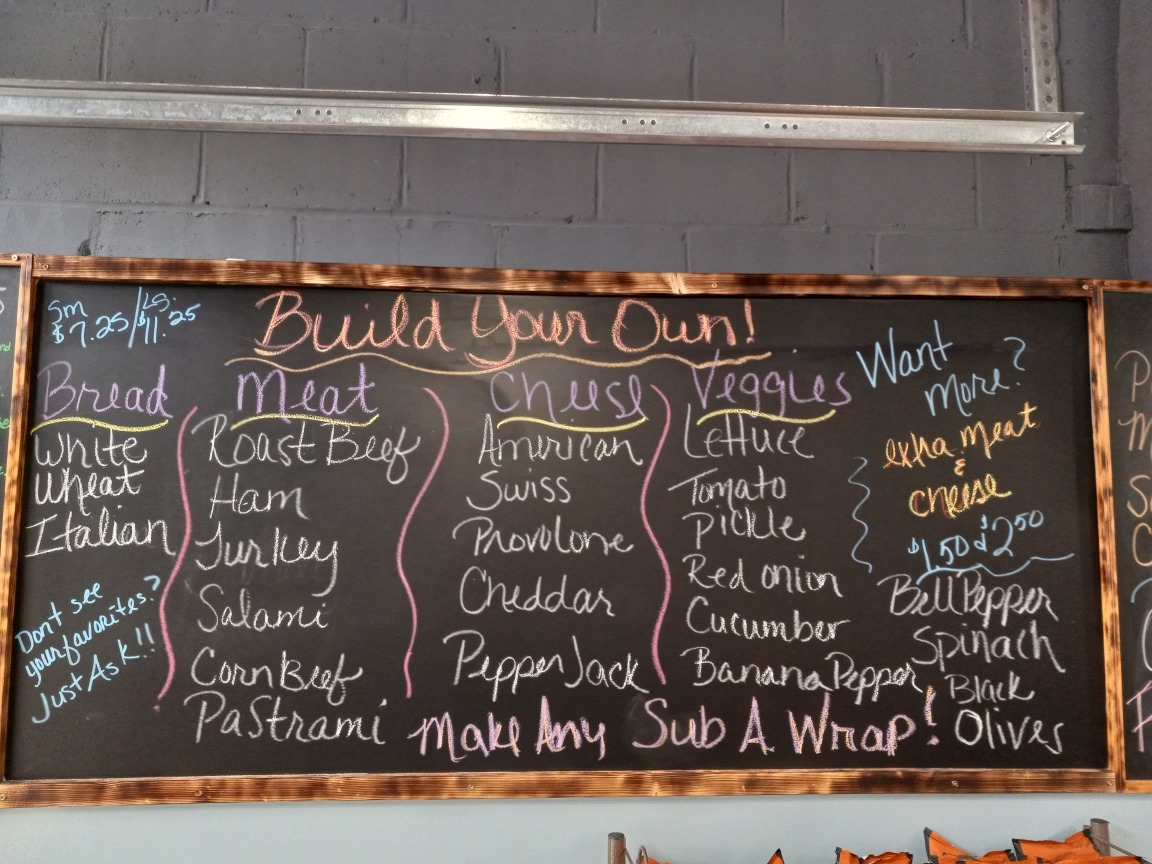 Sm / LG.
$7.25 / $11.25
Build Your Own!
Bread
White
Wheat
Italian
Don't see
your favorites?
Just Ask!!
Meat
Roast Beef
Ham
Turkey
Salami
Corn Beef
Pastrami
Cheese
American
Swiss
Provolone
Cheddar
Pepper Jack
Veggies
Lettuce
Tomato
Pickle
Red onion
Cucumber
Banana Pepper
Want
More?
extra meat
&
cheese
$1.50 & $2.50
Bell Pepper
Spinach
Black
Olives
Make Any Sub A Wrap!